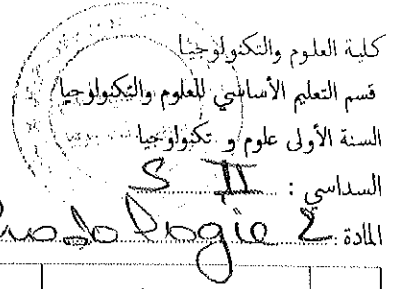 كلية العلوم والتكنولوجيا
قسم التعليم الأساسي للعلوم والتكنولوجيا
السنة الأولى علوم و تكنولوجيا
السداسي : S II
المادة : 2